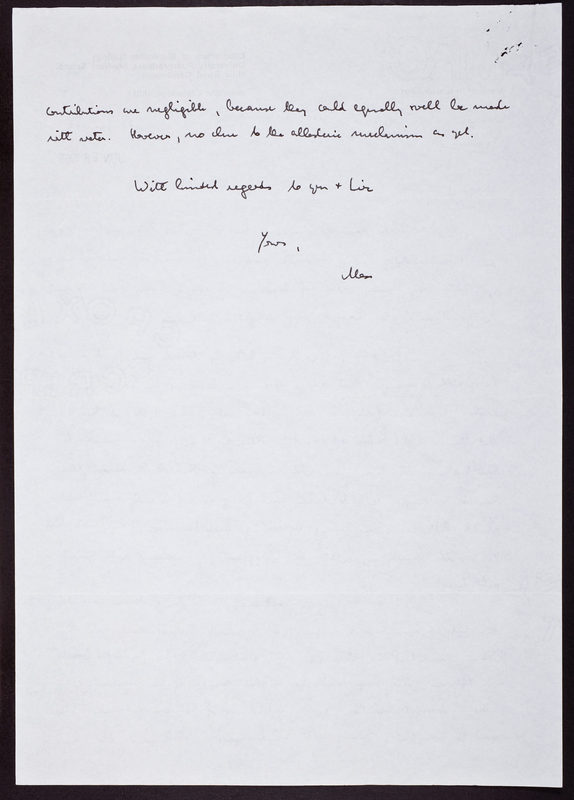 contributions are negligible, because they could equally well be made
with water. However, no clue to the allosteric mechanism as yet.
With kindest regards to you + Liz
Yours,
Max